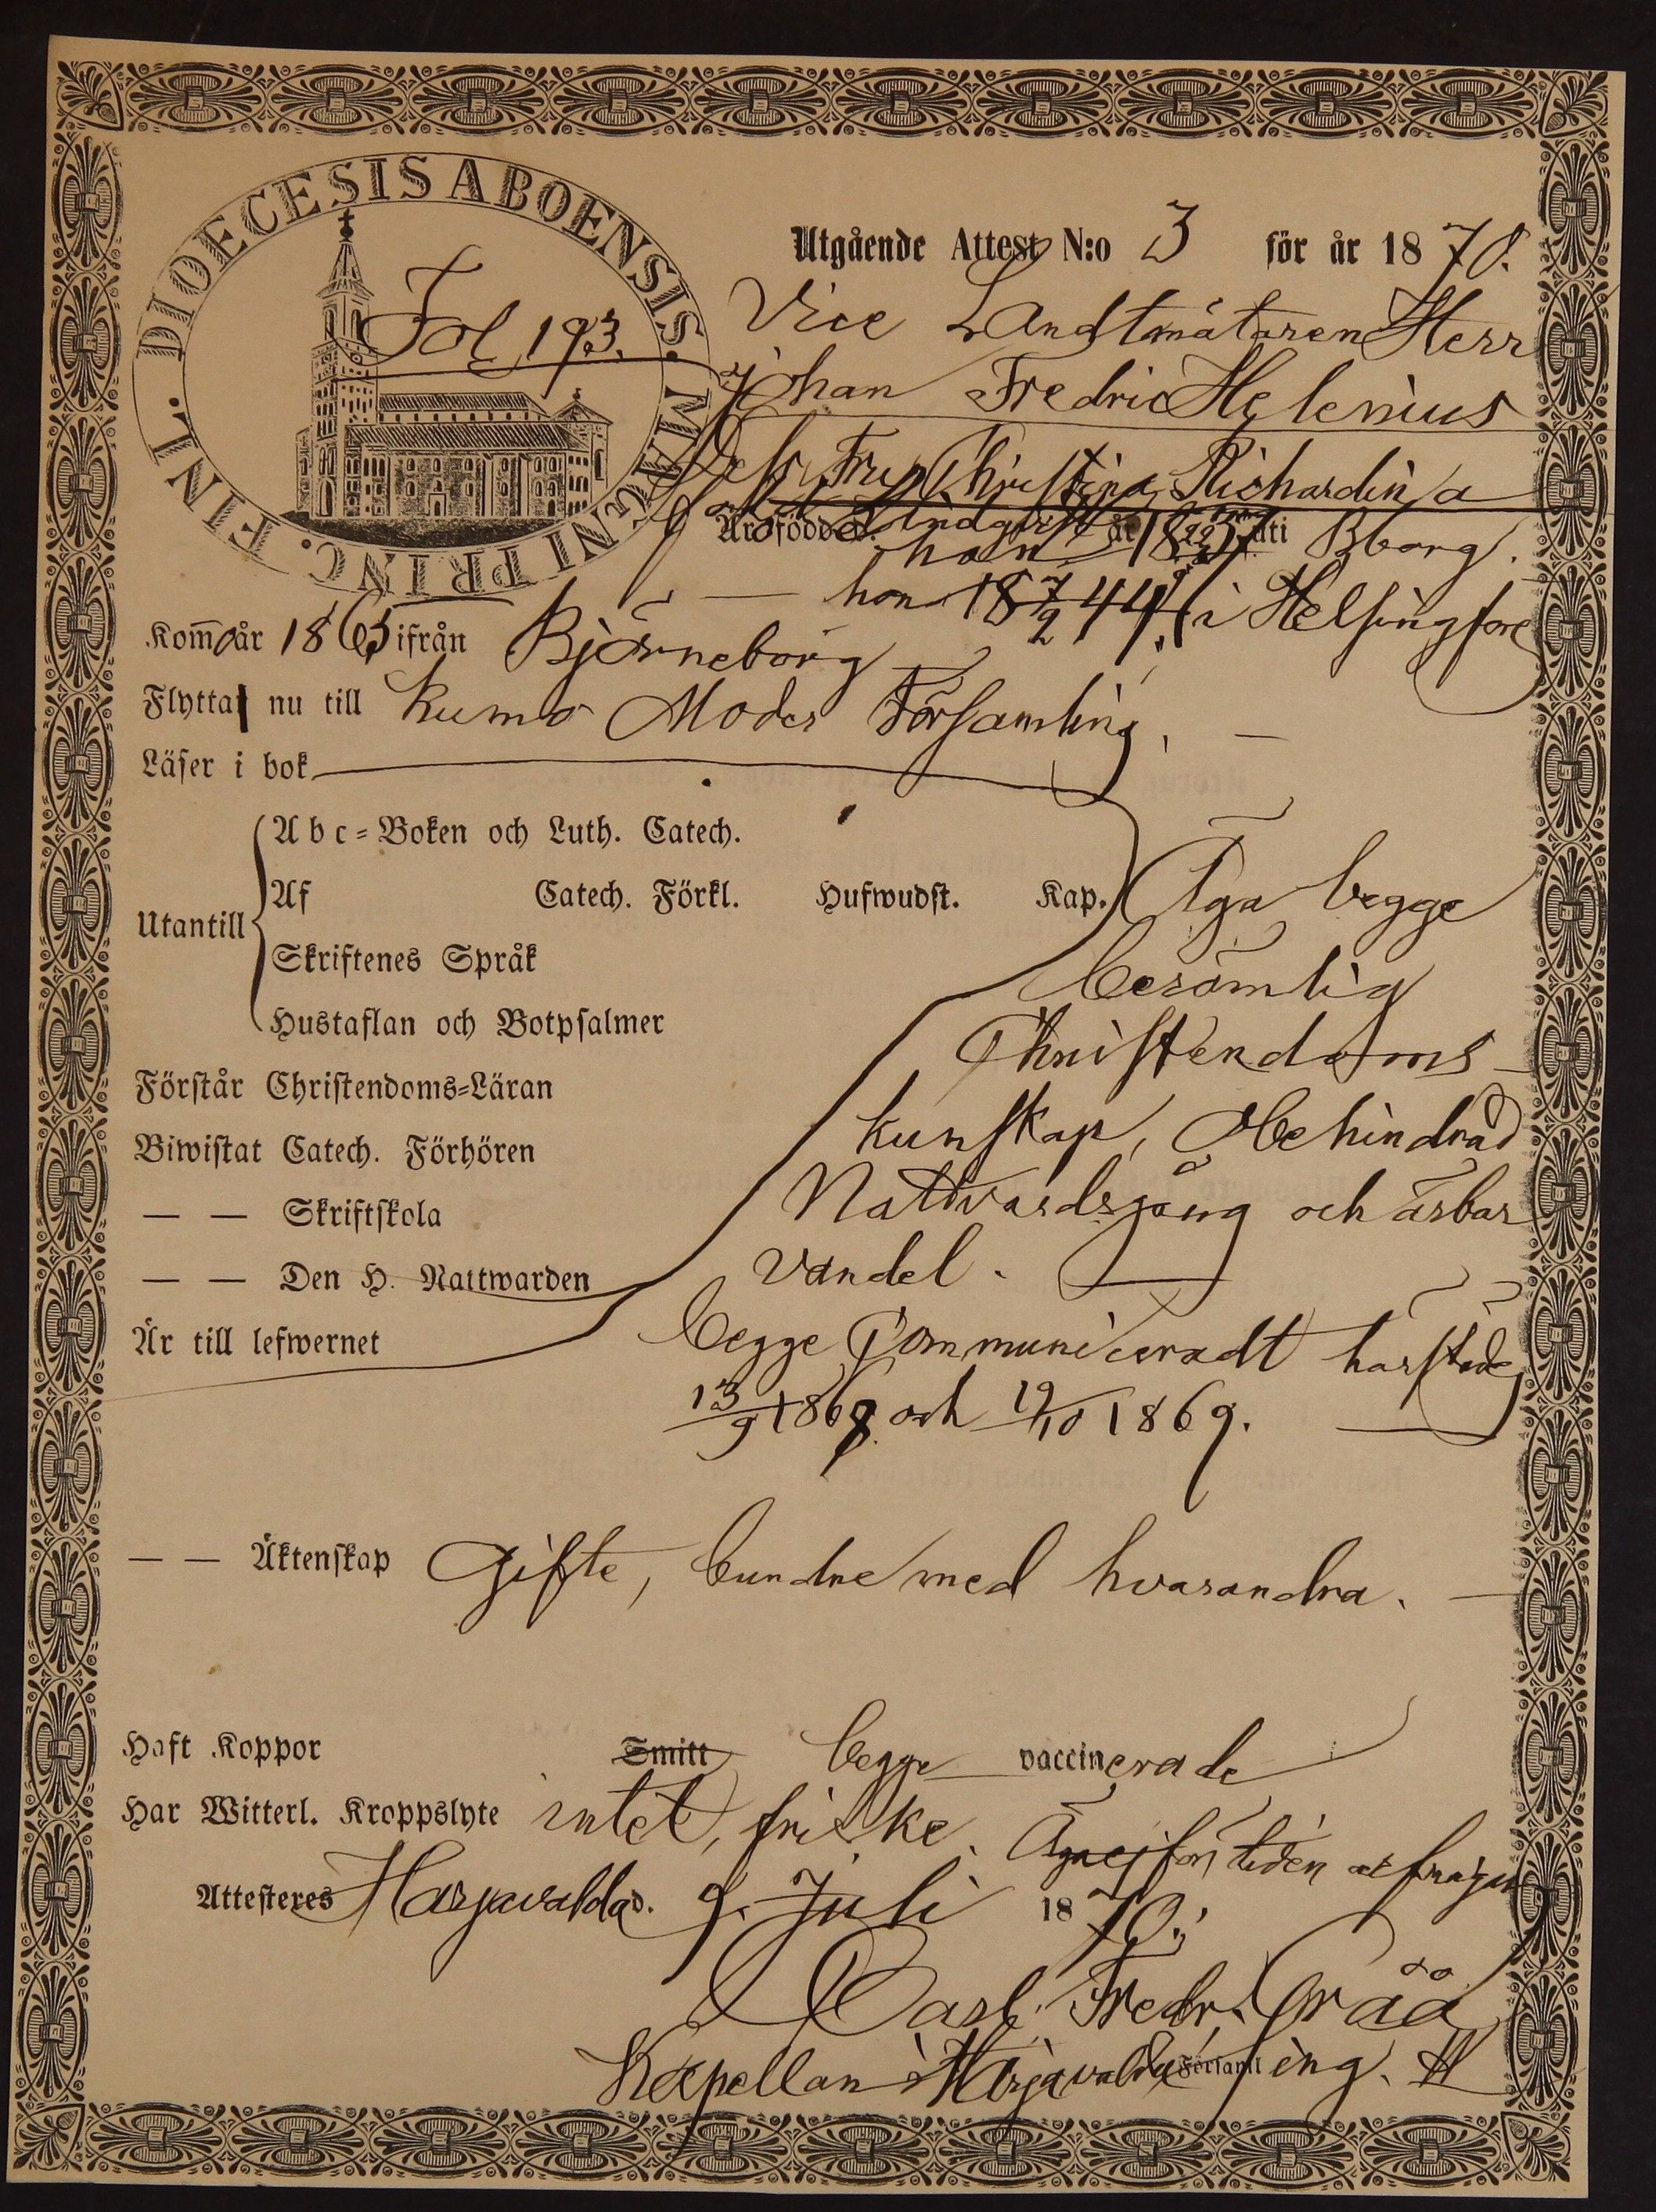 DIOECESIS ABOENSIS. MAGNI PRINC. FINL.
Fol. 193.
Utgående Attest N:o 3 för år 1870.
Vice Landtmätaren Herr
Johan Fredric Helenius
Dess Fru Christina Richardina
född Lindqvist
Äro födde han år 18 uti Bborg.
— hon 18 7/2 44 i Helsingfors
Kom̅o år 1865 ifrån Björneborg
Flytta nu till Kumo Moder Församling. —
Läser i bok
Utantill
Abc-Boken och Luth. Catech.
Af Catech. Förkl. Hufwudst. Kap.
Skriftenes Språk
Hustaflan och Botpsalmer
Förstår Christendoms-Läran
Biwistat Catech. Förhören
— — Skriftskola
— — Den H. Nattwarden
Är till lefwernet
Äga begge
berömlig
Christendoms-
kunskap, Obehindrad
Nattvardsgång och ärbar
vandel. —
begge Communiceradt härstädes
13/9 1868 och 19/10 1869. —
— — Äktenskap Gifte, bundne med hvarandra. —
Haft Koppor Smitt begge vaccinerade
Har Witterl. Kroppslyte intet, friske. Äga ej för tiden
Attesteres Harjavalda d. 9. Juli 1870.
Carl Fredr. Gråå
Kapellan i Harjavalda Församling.